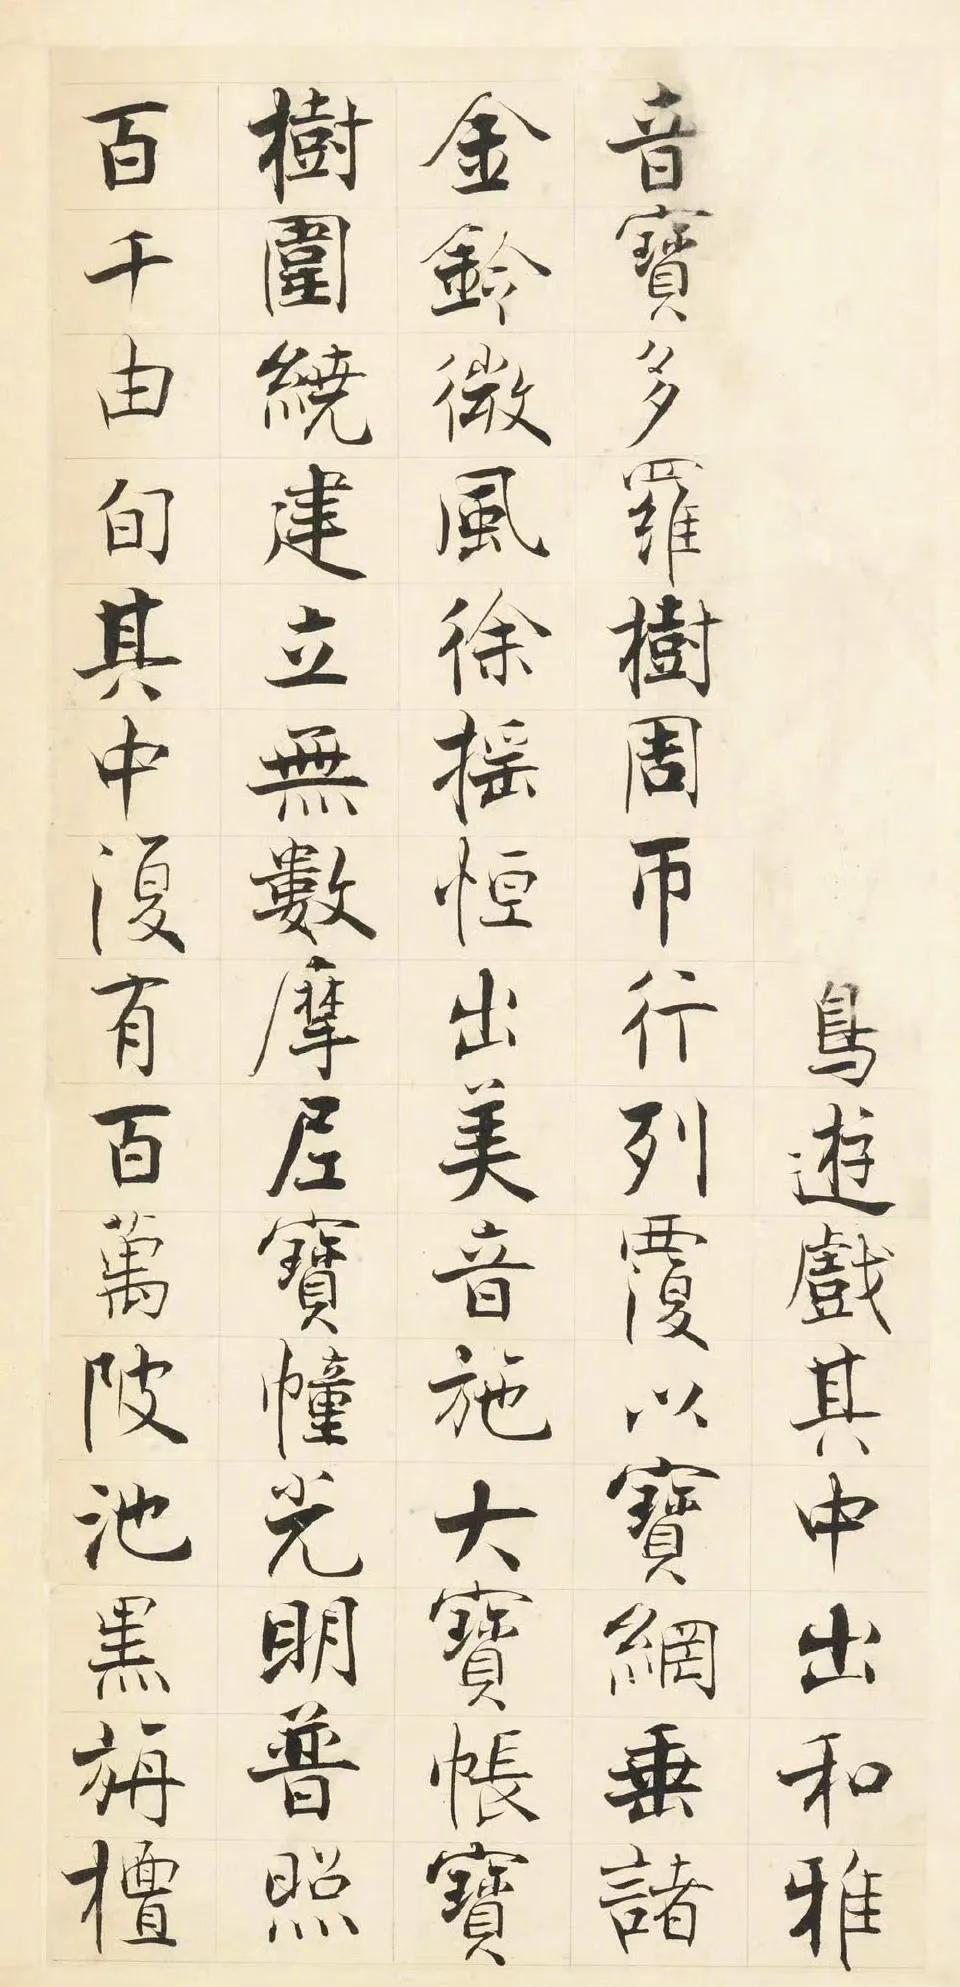 鳥遊戲其中出和雅
音寶多羅樹周帀行列覆以寶網垂諸
金鈴微風徐搖恒出美音施大寶帳寶
樹圍繞建立無數摩尼寶幢光明普照
百千由旬其中復有百萬陂池黑旃檀